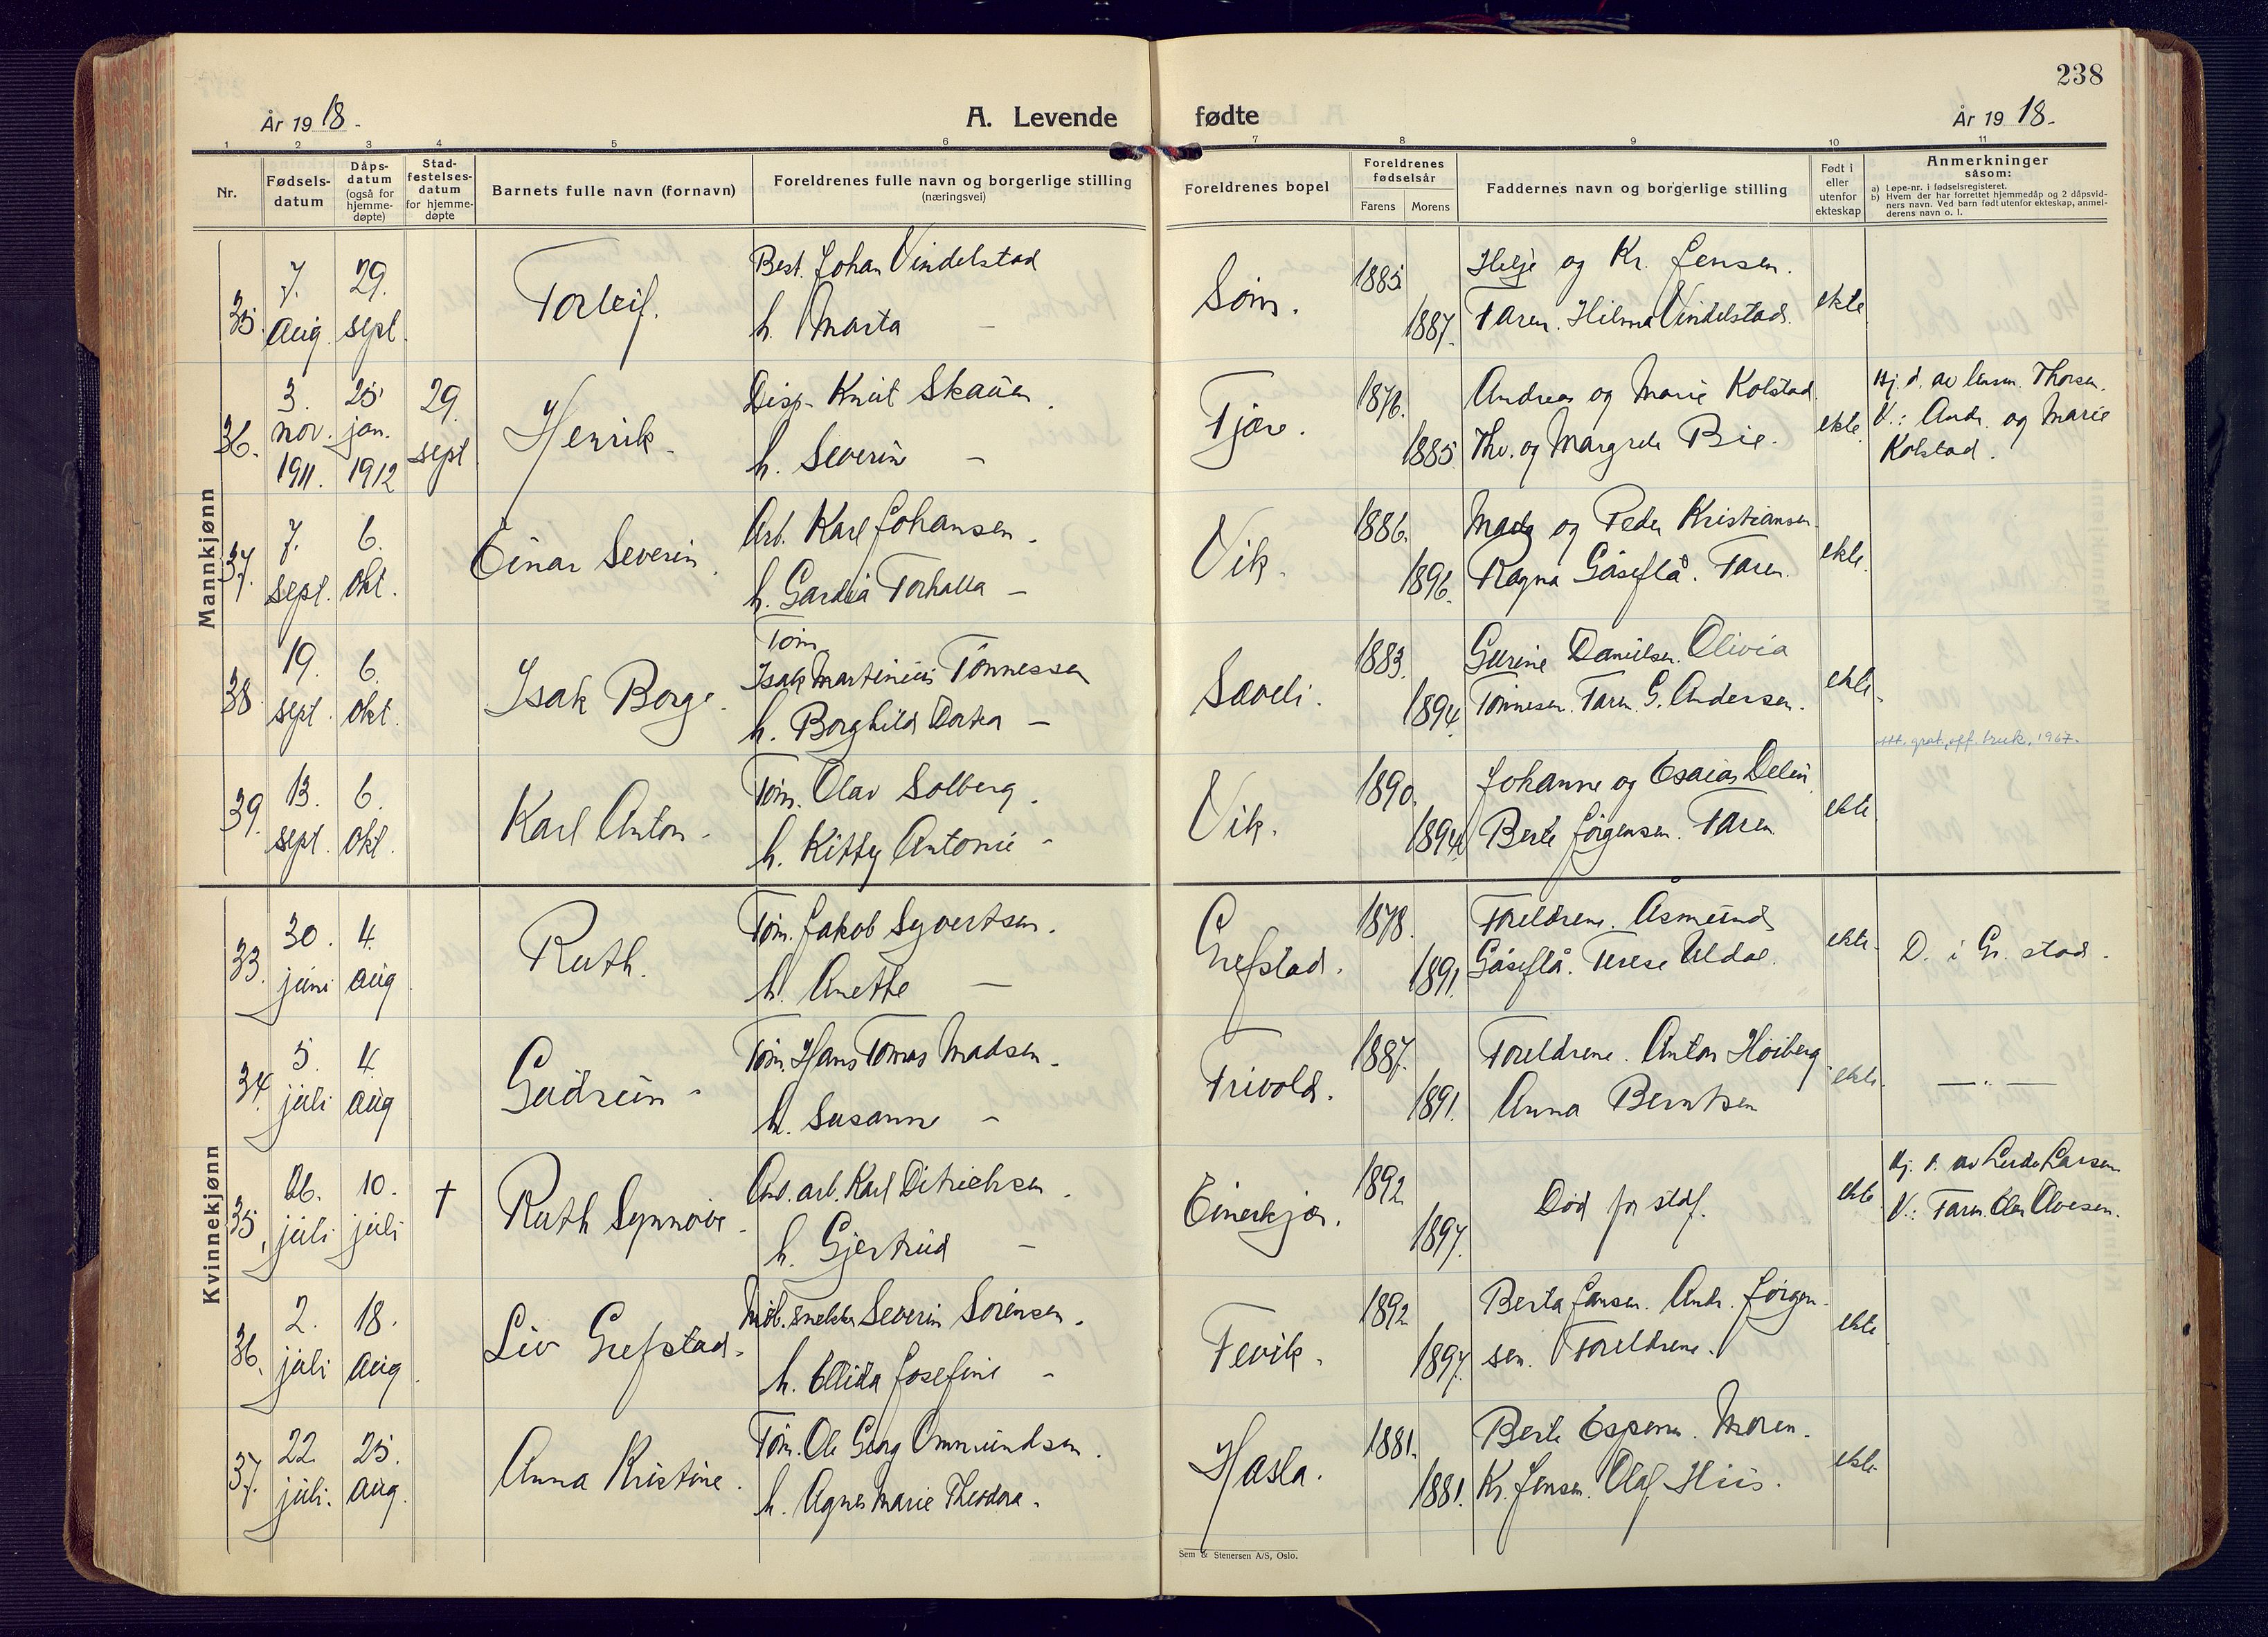 238
År 1918.
A. Levende fødte
År 1918.
1 2 3 4 5 6 7 8 9 10 11
Nr.
Fødsels-
datum
Dåps-
datum
(også for
hjemme-
døpte)
Stad-
festelses-
datum
for hjemme-
døpte
Barnets fulle navn (fornavn)
Foreldrenes fulle navn og borgerlige stilling
(næringsvei)
Foreldrenes bopel
Foreldrenes
fødselsår
Farens Morens
Faddernes navn og borgerlige stilling
Født i
eller
utenfor
ekteskap
Anmerkninger
såsom:
a) Løpe-nr. i fødselsregisteret.
b) Hvem der har forrettet hjemmedåp og 2 dåpsvid-
ners navn. Ved barn født utenfor ekteskap, anmel-
derens navn o. l.
Mannkjønn
35. 7. Aug. 29. sept. Torleif.
Best. Johan Vindelstad
h. Marta —
Søm. 1885 1887.
Helje og Kr. Jensen.
Faren. Hilma Vindelstad.
ekte
36. 3. nov. 1911. 25 jan. 1912 29. sept. Henrik.
Disp. Knut Skauen.
h. Severin —
Fjære. 1876. 1885
Andreas og Marie Kolstad
Thv. og Margrete Bie.
ekte.
Hj. d. av Thorsen.
V.: Andr. og Marie
Kolstad.
37. 7. sept. 6. okt. Einar Severin.
Arb. Karl Johansen.
h. Gardia Torhalla —
Vik. 1886. 1896.
Madz og Peder Kristiansen.
Ragna Gåseflå. Faren.
ekte.
38. 19. sept. 6. okt. Isak Borge.
Tøm.
Isak Martinius Tønnessen
h. Borghild Dorthea —
Saveli. 1883. 1894.
Gurine Danielsen. Olivia
Tønnesen. Faren. G. Andersen.
ekte.
att. grat. off. bruk. 1967.
39. 13. sept. 6. okt. Karl Anton.
Tøm. Olav Solberg.
h. Kitty Antonie -
Vik. 1890. 1894
Johanne og Esaias Delin
Berte Jørgensen. Faren
ekte
Kvinnekjønn
33. 30. juni 4. aug Ruth.
Tøm. Jakob Syvertsen.
h. Anette —
Grefstad. 1878. 1891.
Foreldrene. Åsmund
Gåseflå. Terese Uldal.
ekte.
D. i Gr. stad.
34. 5. juli 4. aug Gudrun -
Tøm. Hans Tomas Madsen.
h. Susanne -
Trivold. 1887. 1891.
Foreldrene. Anton Høiberg
Anna Berntsen
ekte.
— " —
35. juli 10. juli † Ruth Synnøve.
And. arb. Karl Ditrichsen.
h. Gjertrud —
Einerkjær. 1892 1897.
Død før stdf.
ekte
Hj. d. av Larsen
V.: Faren. Olav Olvesen.
36. 2. juli 18. aug. Liv Grefstad.
Møb. snekker Severin Sørensen.
h. Ellida Josefine -
Fevik. 1892 1897.
Berta Jansen. Andr. Jørgen-
sen. Foreldrene.
ekte
37. 22. juli. 25. aug. Anna Kristine.
Tøm. Ole Georg Ommundsen.
h. Agnes Marie Theodora.
Hasla. 1881. 1881.
Berte Espenes. Moren.
Kr. Jensen. Olaf Hiis.
ekte.
Sem & Stenersen A/S, Oslo.